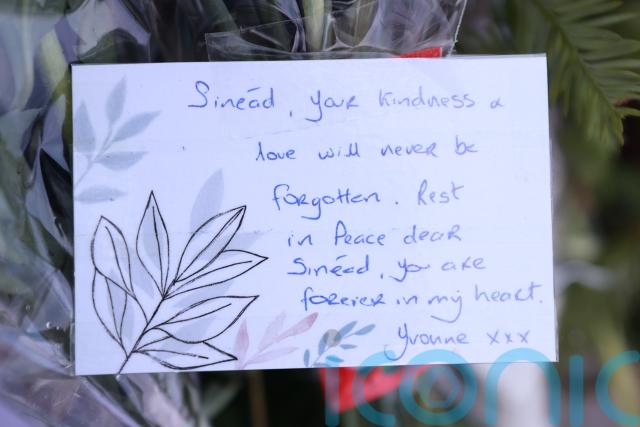 Sinéad, your kindness &
love will never be
forgotten. Rest
in Peace dear
Sinéad, you are
forever in my heart.
Yvonne xxx
iconic